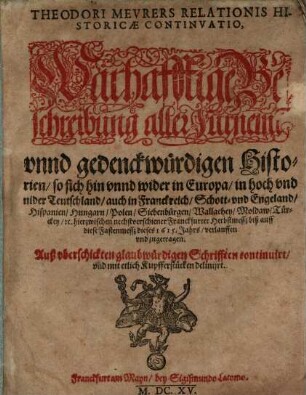 THEODORI MEVRERS RELATIONIS HI-
STORICÆ CONTINVATIO,
Warhafftige Be-
schreibung aller fürnem-
vnnd gedenckwürdigen Histo-
rien / so sich hin vnnd wider in Europa / in hoch vnd
nider Teutschland / auch in Franckreich / Schott- vnd Engeland /
Hispanien / Hungarn / Polen / Siebenbürgen / Wallachey / Moldaw / Tür-
ckey / etc. hierzwischen nechstverschiener Franckfurter Herbstmeß / biß auff
diese Fastenmeß / dieses 1615. Jahrs / verlauffen
vnd zugetragen.
Auß vberschickten glaubwürdigen Schrifften continuirt /
vnd mit etlich Kupfferstücken delinirt.
Franckfurt am Mayn / bey Sigismundo Latomo.
M. DC. XV.